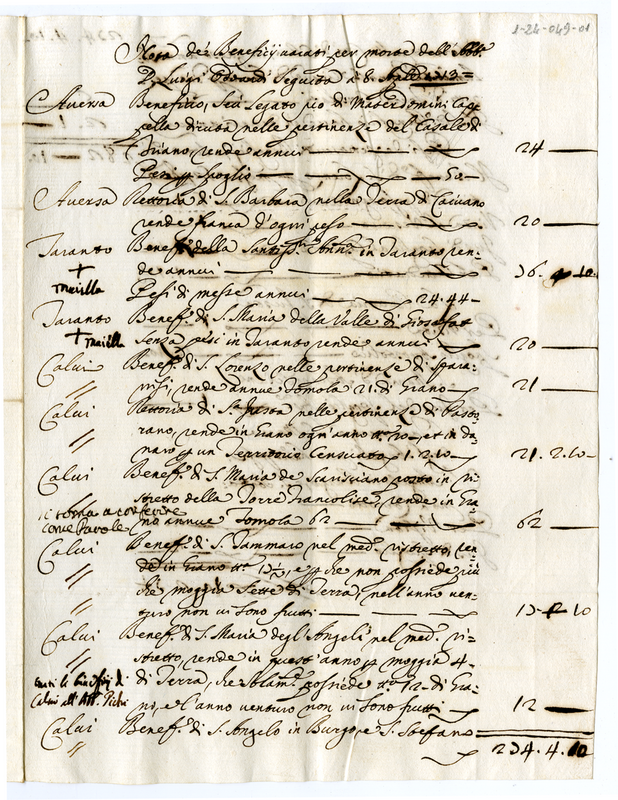 1-24-049-01
Nota de' Beneficij vacati per morte dell' Abb.
D. Luigi Odoardi seguita a 8. Aprile
Aversa Beneficio, seu Legato pio di Materdomini Cap=
pella diruta nelle pertinenze del Casale di
rende annui 24
Pesi spoglio 50
Aversa Rettoria di S. Barbara nella Terra di Caivano
rende franca d'ogni peso 20
Taranto Benef. della Santiss. Ann. in Taranto ren=
de annui 36. 10
Pesi di messe annui 24.44
Taranto Benef. di S. Maria della Valle di Giosafat
senza pesi in Taranto rende annui 20
Calvi Benef. di S. Lorenzo nelle pertinenze di Spara=
nisi, rende annue Tomola 21. di Grano 21
Calvi Rettoria di S. Justa nelle pertinenze di Pasto=
rano, rende in Grano ogn'anno 20 et in da=
naro un Territorio Censuato 1.2.10 21.2.10
Calvi Benef. di S. Maria de posto in Di=
stretto della Torre Francolise, rende in Gra=
no annue Tomola 62 62
Calvi Benef. di S. Tammaro nel med. distretto, ren=
de in Grano e che non possiede più
che moggia sette di Terra, nell'anno ven=
turo non vi sono frutti 10
Calvi Benef. di S. Maria degl'Angeli nel med. di=
stretto, rende in quest'anno moggia 4.
di Terra, che solam. possiede 12. di Gra=
no, e l'anno venturo non vi sono frutti 12
Calvi Benef. di S. Angelo in Burgo, e S. Stefano
234.4.10